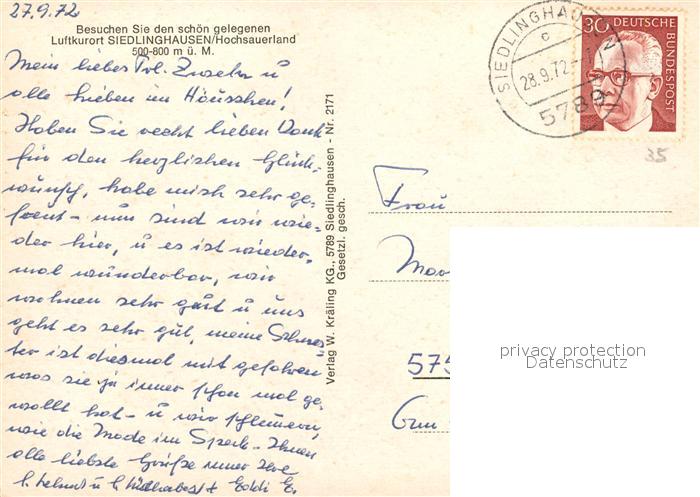 27.9.72
Besuchen Sie den schön gelegenen
Luftkurort SIEDLINGHAUSEN/Hochsauerland
500-800 m ü. M.
Mein liebes Frl. u
alle lieben im Häuschen!
Haben Sie recht lieben Dank
für den herzlichen Glück-
wunsch, habe mich sehr ge-
freut - nun sind wir wie-
der hier, u es ist wieder
mal wunderbar, wir
wohnen sehr gut u uns
geht es sehr gut, meine Schwes-
ter ist diesmal mit gefahren
was sie ja immer schon mal ge-
wollt hat - u wir schlemmern,
wie die Made im Speck - Ihnen
alle liebste Grüße immer Ihre
Verlag W. Kräling KG., 5789 Siedlinghausen - Nr. 2171
Gesetzl. gesch.
SIEDLINGHAUSEN
c
28.9.72
5789
30 DEUTSCHE
BUNDESPOST
35
Frau
575
privacy protection
Datenschutz